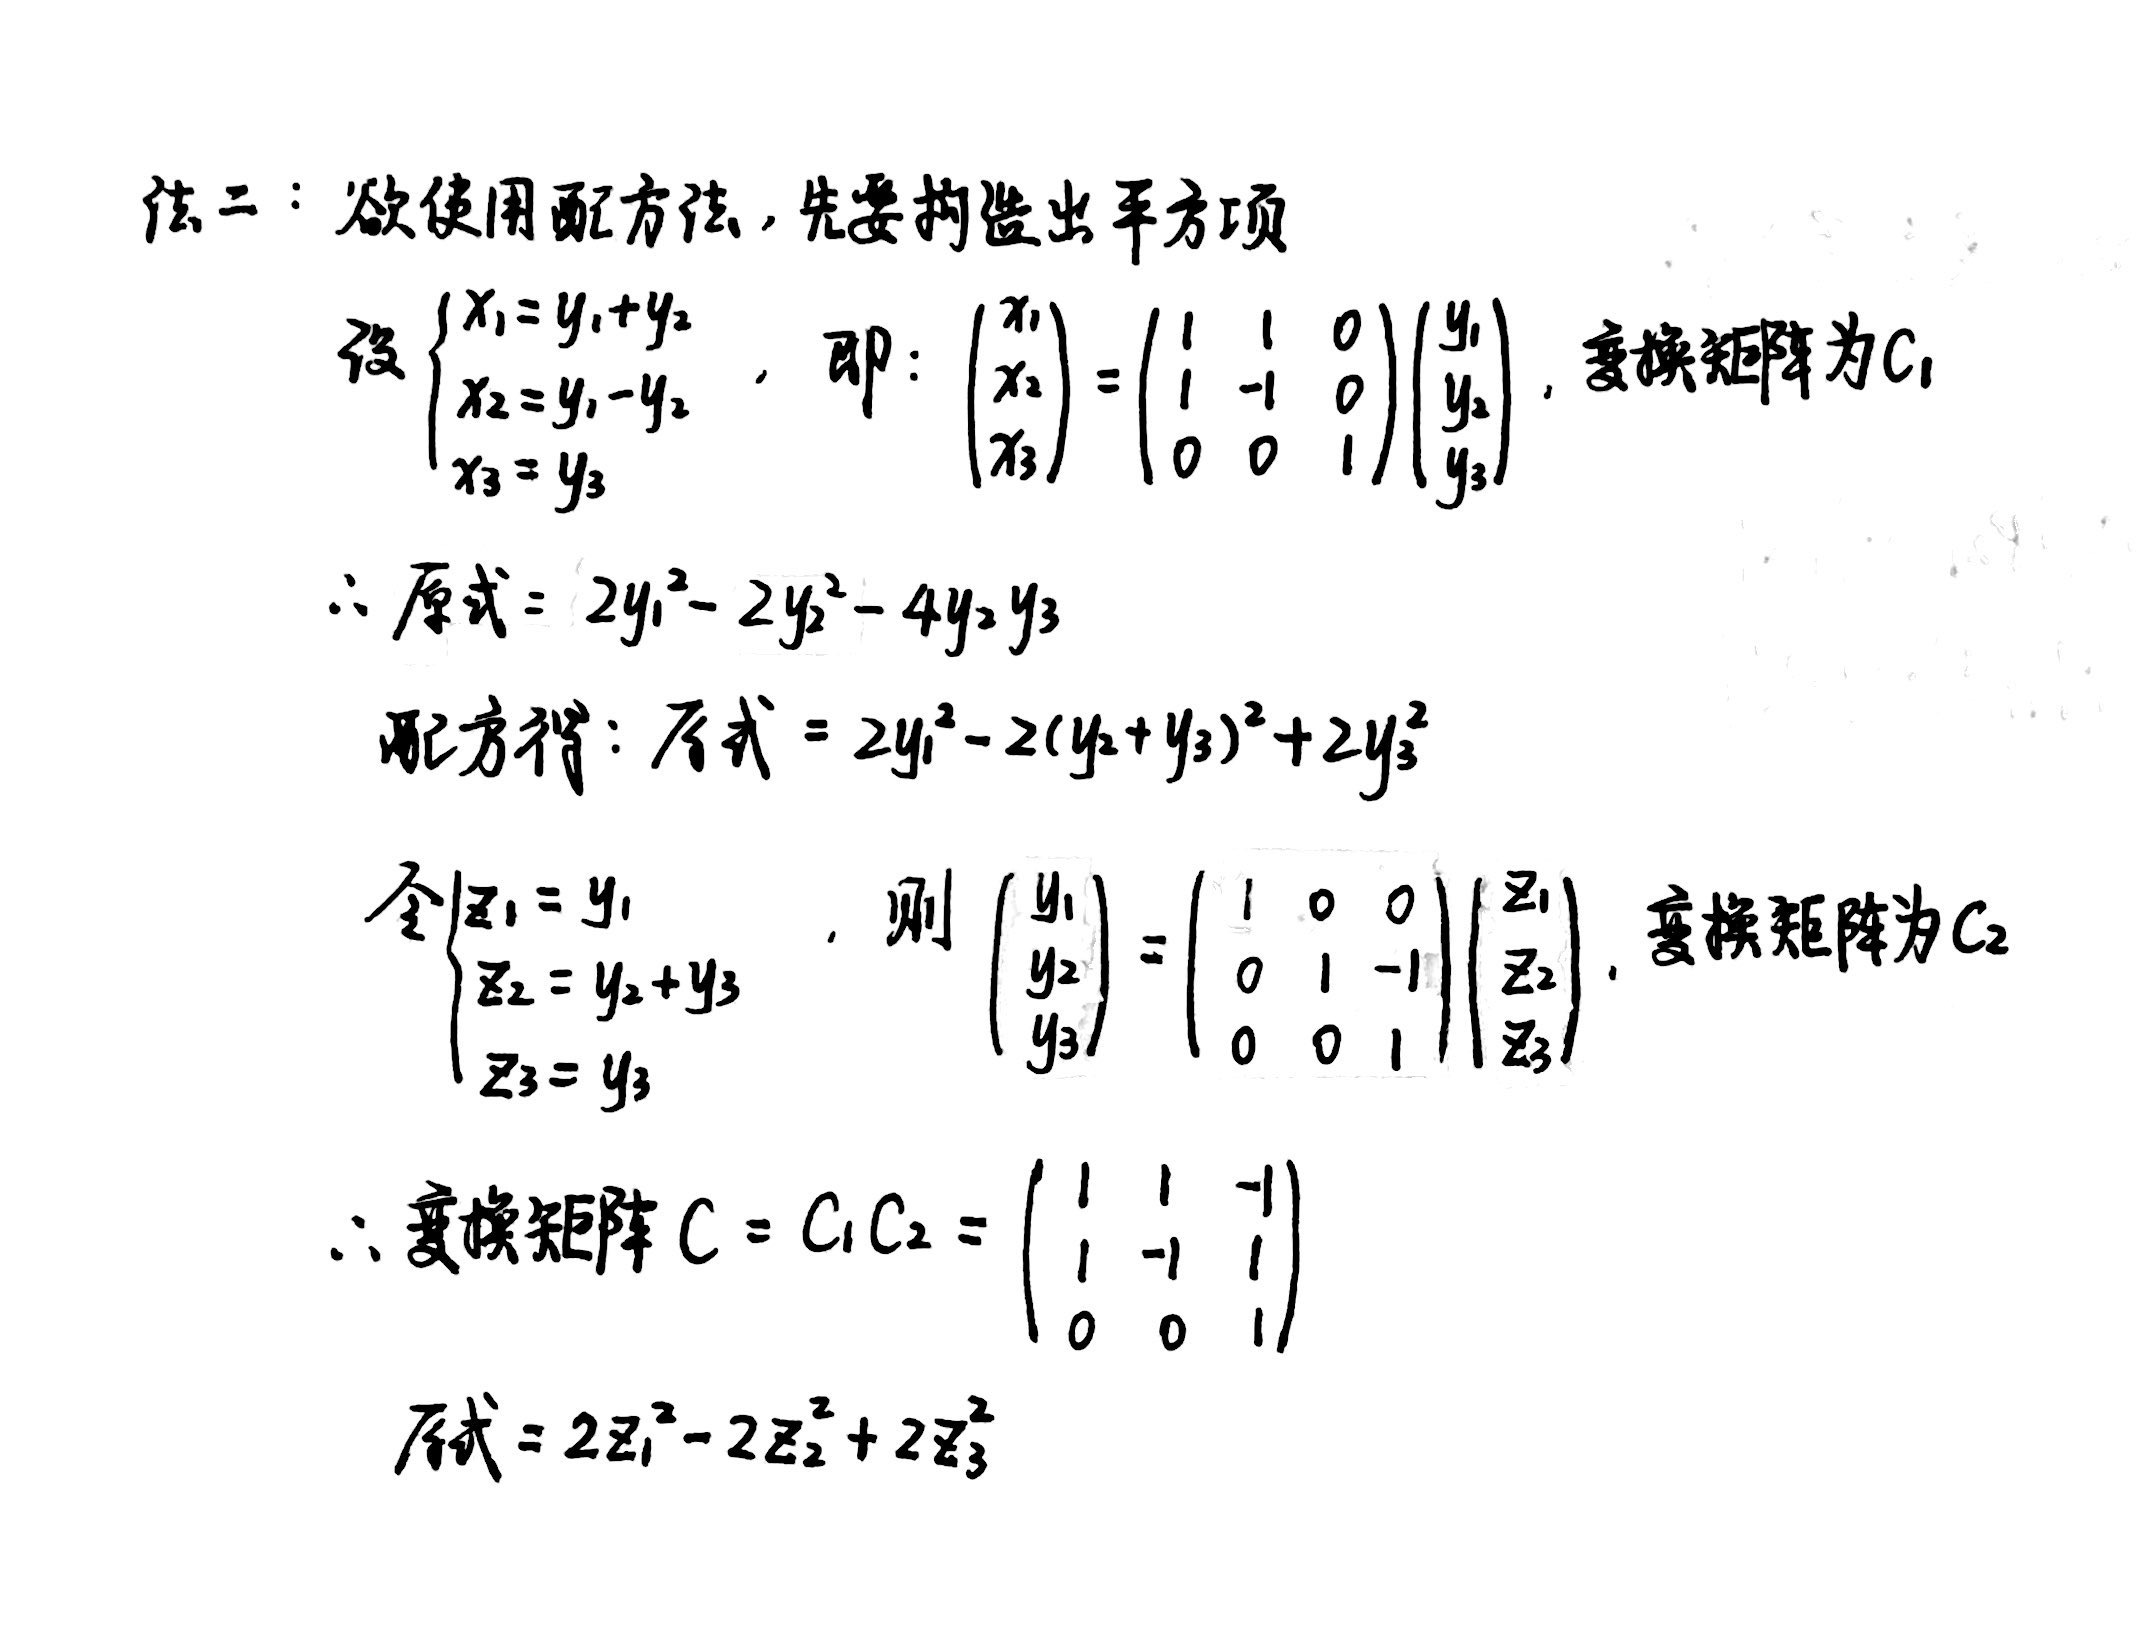 法二：欲使用配方法，先要构造出平方项
设 { x₁=y₁+y₂ , x₂=y₁-y₂ , x₃=y₃ ，即： (x₁ x₂ x₃) = (1 1 0 / 1 -1 0 / 0 0 1)(y₁ y₂ y₃)，变换矩阵为C₁
∴ 原式= 2y₁²-2y₂²-4y₂y₃
配方得：原式 = 2y₁²-2(y₂+y₃)²+2y₃²
令 { z₁=y₁ , z₂=y₂+y₃ , z₃=y₃ ，则 (y₁ y₂ y₃) = (1 0 0 / 0 1 -1 / 0 0 1)(z₁ z₂ z₃)，变换矩阵为C₂
∴ 变换矩阵 C = C₁C₂ = (1 1 -1 / 1 -1 1 / 0 0 1)
原式=2z₁²-2z₂²+2z₃²